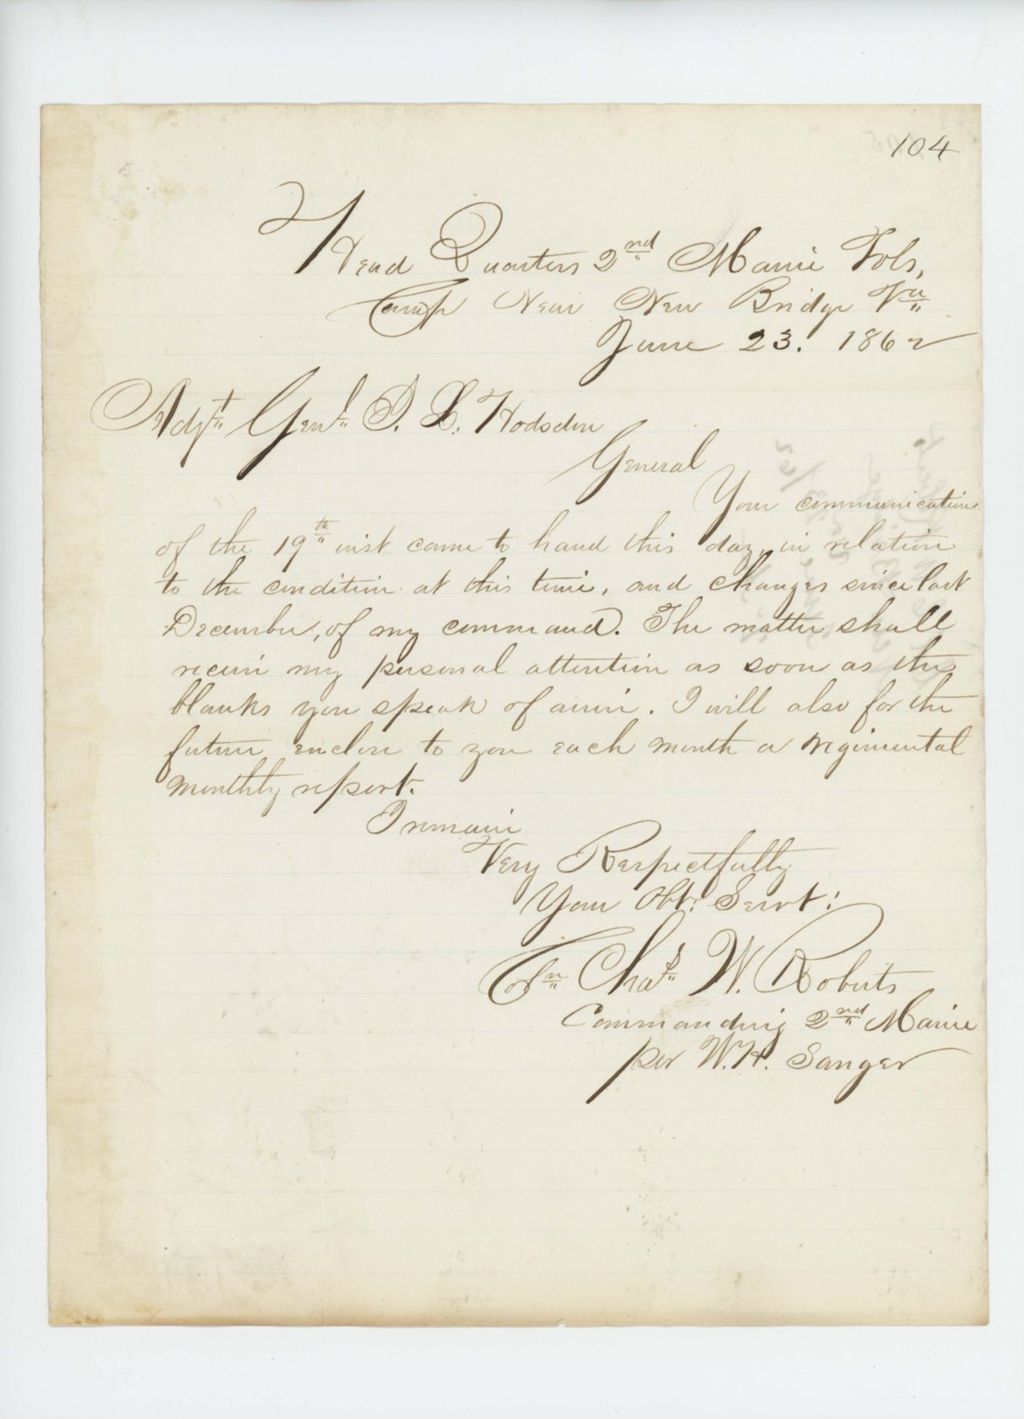 104
Head Quarters 2nd Maine Vols,
Camp Near New Bridge Va
June 23. 1862
Adjt Genl. J. L. Hodsdon
General
Your communication
of the 19th inst. came to hand this day, in relation
to the condition at this time, and changes since last
December, of my command. The matter shall
receive my personal attention as soon as the
blanks you speak of arrive. I will also for the
future, enclose to you each month a regimental
monthly report.
I remain
Very Respectfully
Your Obt. Servt:
Col Chas W. Roberts
Commanding 2nd Maine
per W. H. Sanger